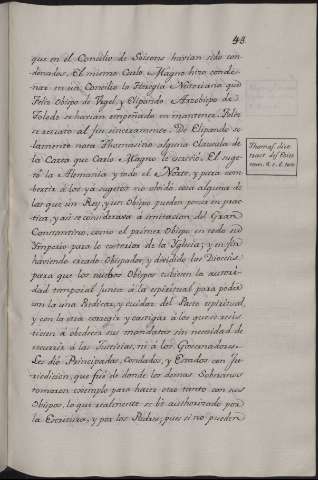 48.
que en el Concilio de Soisons havian sido con-
denados. El mismo Carlo Magno hizo conde-
nar en un Concilio la Heregia Nestoriana que
Felix Obispo de Urgel, y Elipando Arzobispo de
Toledo se havian empeñado en mantener. Felix
se retrató al fin sinceramente. De Elipando so-
lamente nota Thomasino alguna Clausula de
la Carta que Carlo Magno le escrivió. El suge-
tó la Alemania y todo el Norte, y para con-
vertir á los ya sugetos no olvidó cosa alguna de
las que un Rey, y un Obispo pueden poner en prac-
tica, y asi se consideraba á imitacion del Gran
Constantino, como el primer Obispo en todo su
Imperio para lo exterior de la Yglesia; y en fin
haviendo creado Obispados, y dividido las Diocesis
para que los nuebos Obispos tubiesen la autori-
dad temporal junta á la espiritual para poder
con la una Predicar, y cuidar del Pasto espiritual,
y con la otra corregir y castigar á los que se resis-
tiesen á obedecer sus mandatos sin necesidad de
recurrir á las Justicias, ni á los Governadores.
Les dió Principados, Condados, y Estados con Ju-
risdiccion, que fué de donde los demas Soberanos
tomaron exemplo para hacer otro tanto con sus
Obispos, lo qual realmente se be authorizado por
la Escritura, y por los Padres; pues si no pueden
Thomas. dice